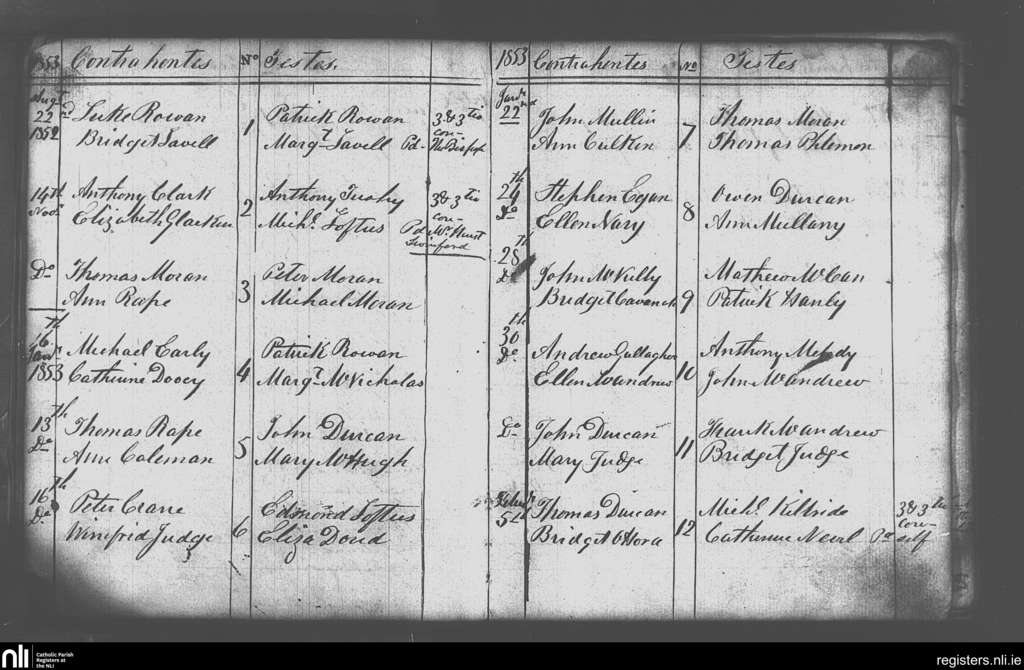 1853 Contrahentes No Testes.
Augt
22d Luke Rowan 1 Patrick Rowan 3 & 3 tio
1852 Bridget Lavell Margt Lavell Pd con-
The Bishop
14th Anthony Clark 2 Anthony 3 & 3 tio
Novr Elizabeth Michl Loftus con-
Pd Mr Hurst
Swinford
Do Thomas Moran 3 Peter Moran
Ann Rape Michael Moran
6th
Jany Michael Early 4 Patrick Rowan
1853 Catherine Doocy Margt McNicholas
13th Thomas Rape 5 John Durcan
Do Ann Coleman Mary McHugh
16th Peter Crane 6 Edmond Loftus
Do Winifrid Judge Eliza Doud
1853 Contrahentes No Testes
22nd John Mullin 7 Thomas Moran
Ann Culken Thomas Philemon
24th Stephen Egan 8 Owen Durcan
Do Ellen Nary Ann Mullany
28th John McNulty 9 Mathew McCan
Do Bridget Cavenah Patrick Hanly
30th Andrew Gallagher 10 Anthony Melody
Do Ellen McAndrew John McAndrew
Do John Durcan 11 Frank McAndrew
Mary Judge Bridget Judge
5th Thomas Durcan 12 Michl Kilbride 3 & 3 tio
Bridget O Hora Catherine Pd con-
self
nli Catholic Parish
Registers at
the NLI
registers.nli.ie